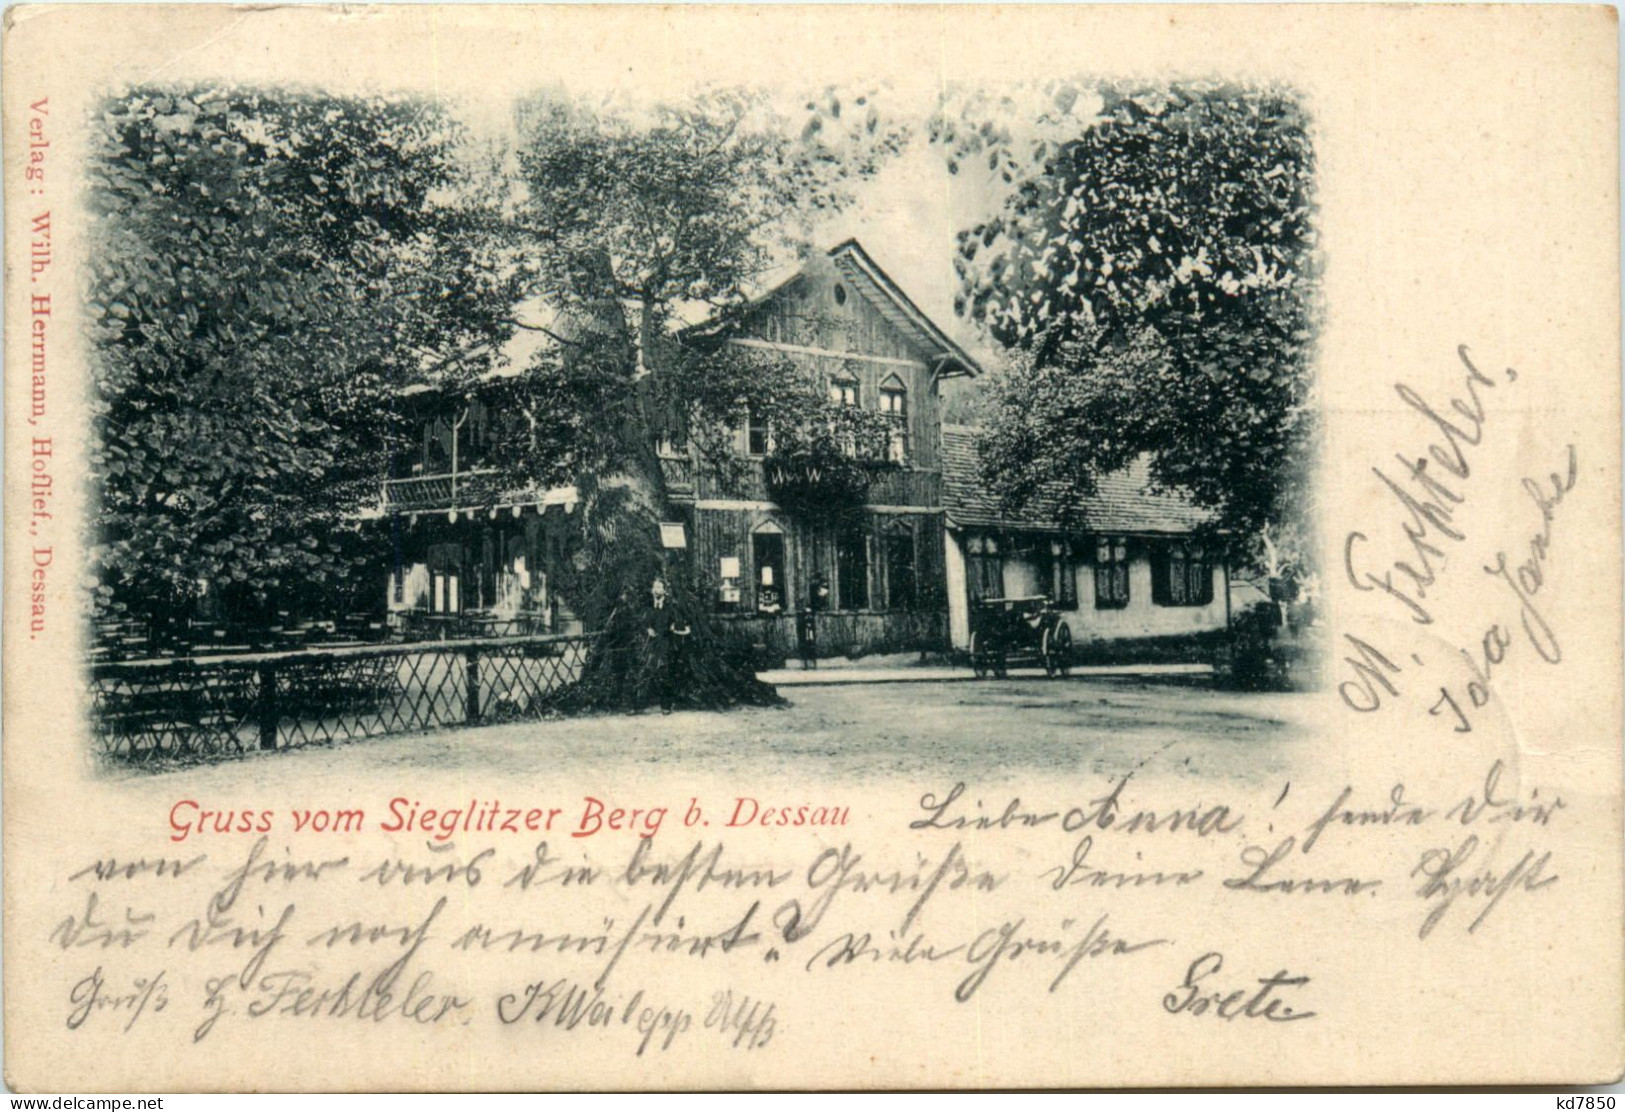 Verlag: Wilh. Herrmann, Hoflief., Dessau.
Gruss vom Sieglitzer Berg b. Dessau
Liebe Anna! sende Dir
von hier aus die besten Grüße deine Lene. Hast
Du Dich noch amüsiert? Viele Grüße
Grete.
Gruß H. Ferchteler.
M. Ferchteler.
Ida Janke
www.delcampe.net
kd7850